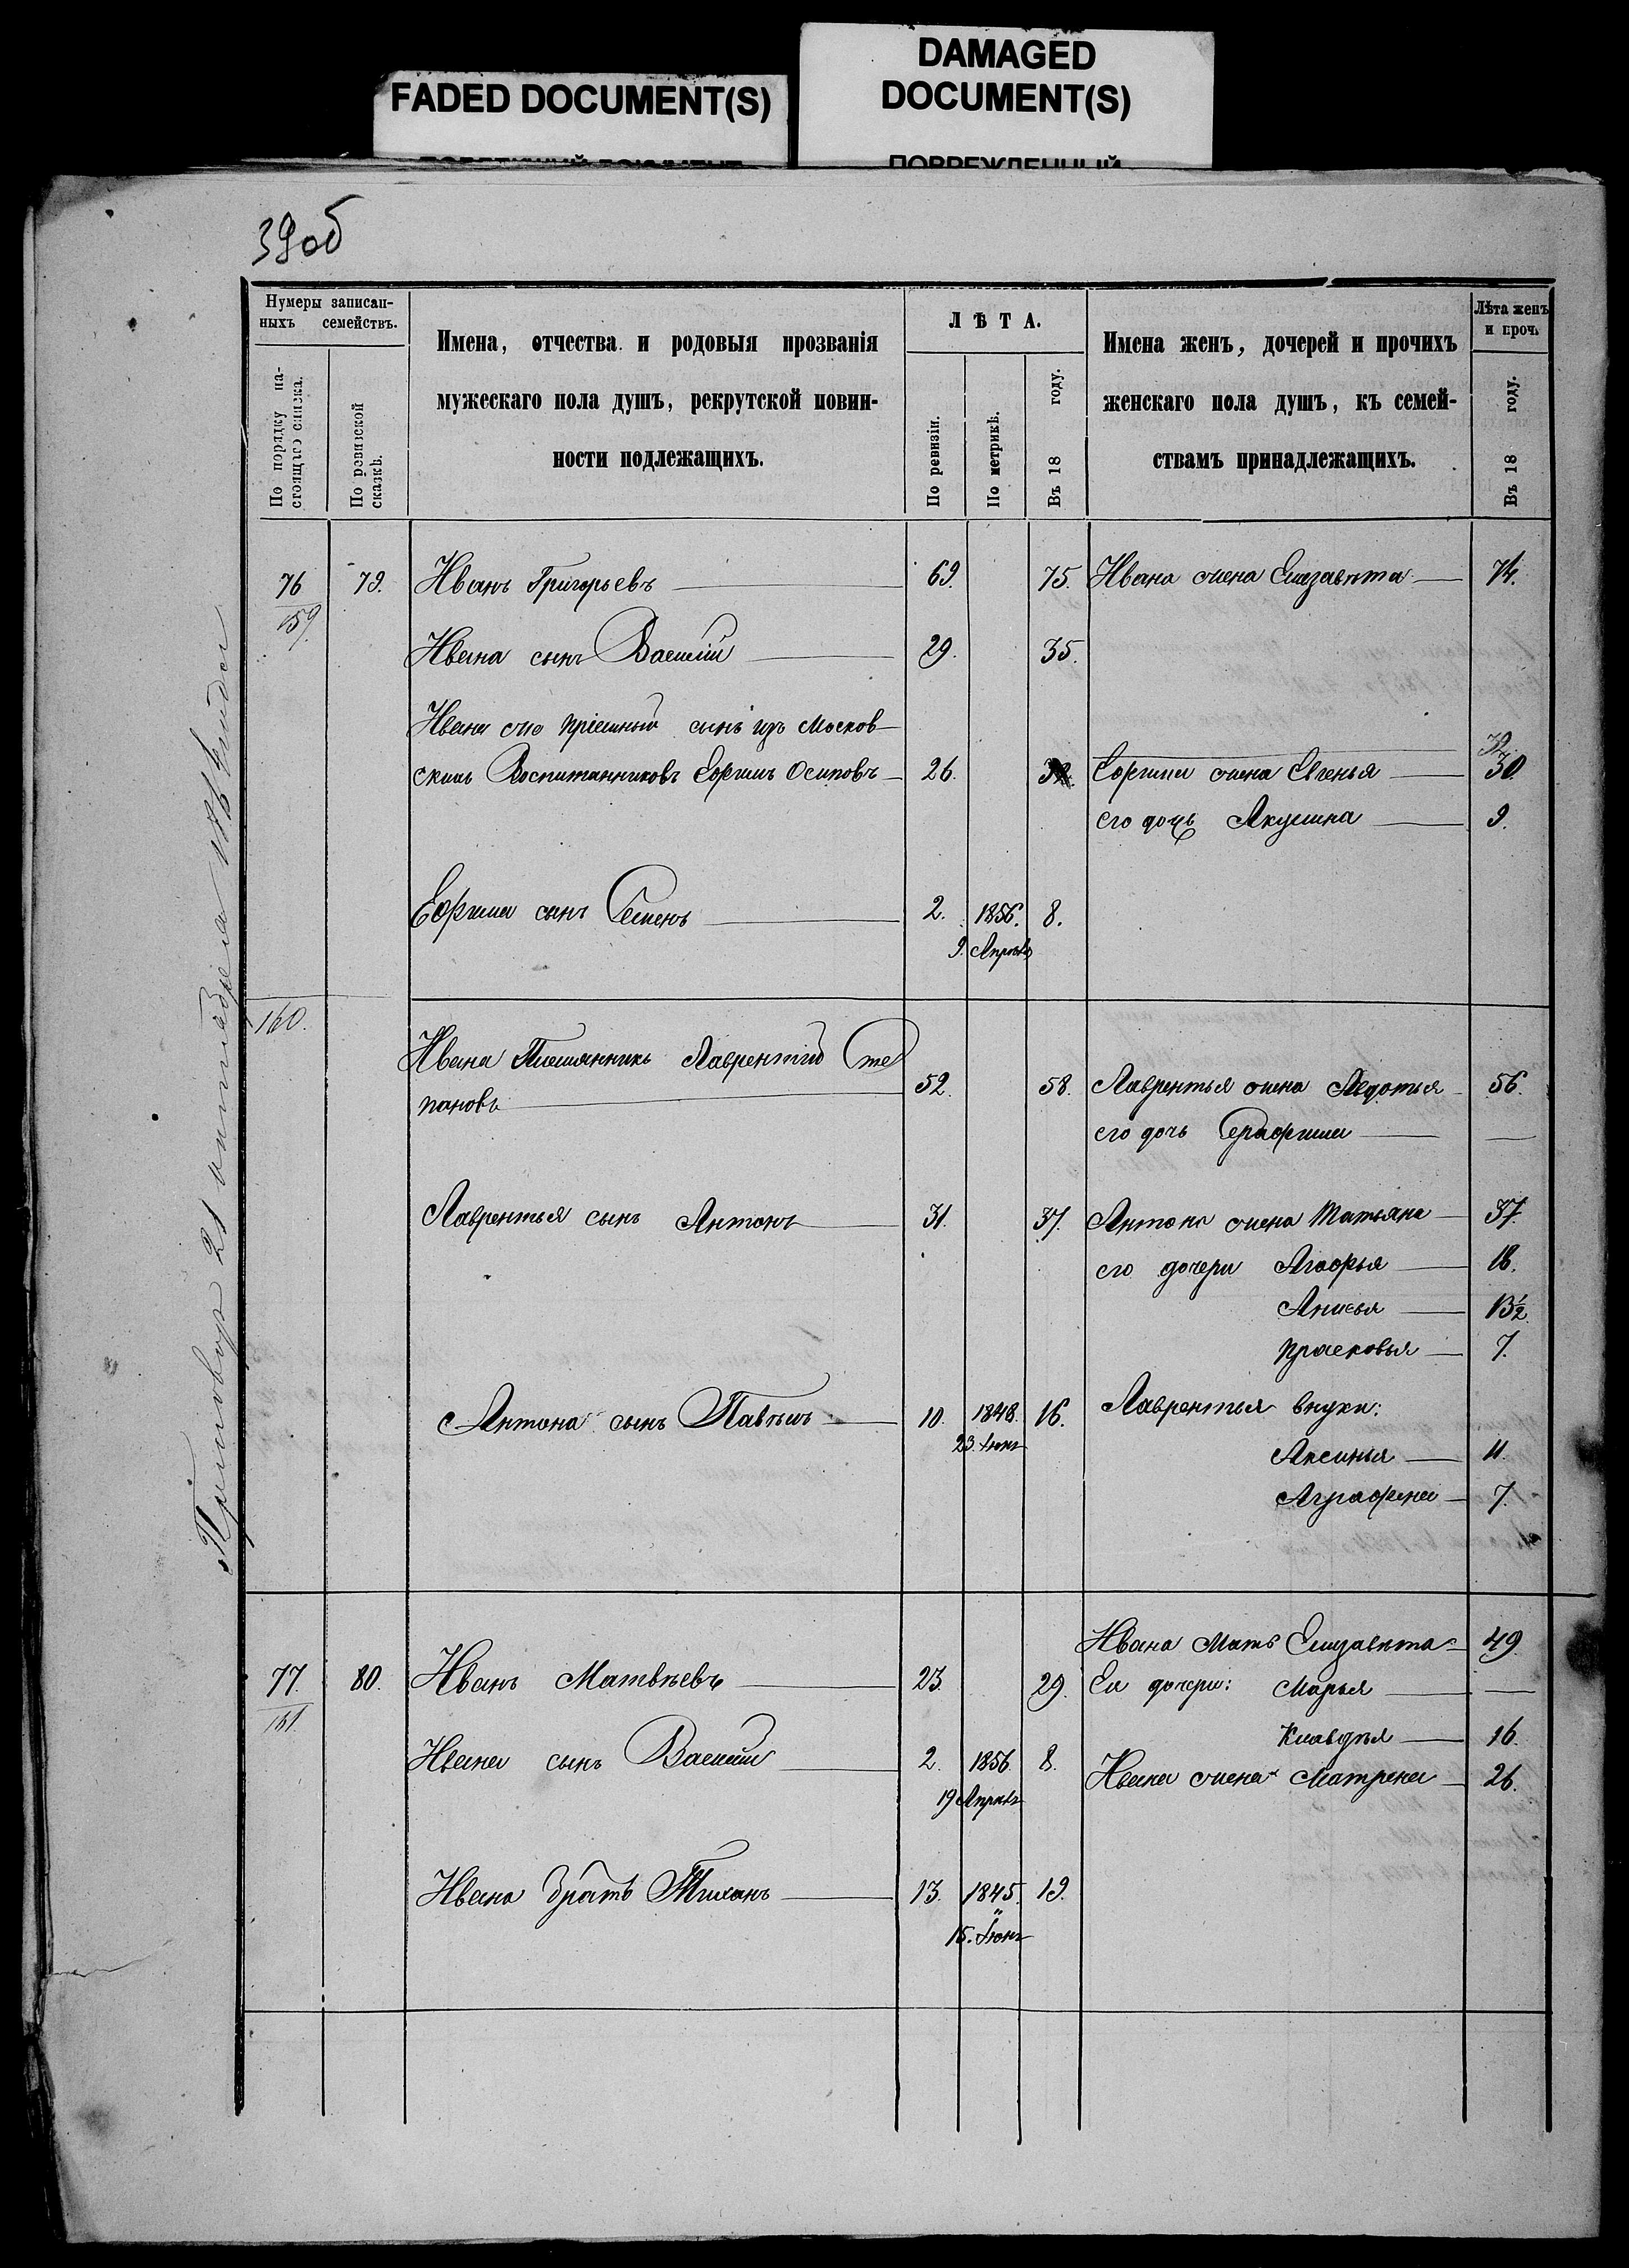 FADED DOCUMENT(S)
DAMAGED
DOCUMENT(S)
ПОВРЕЖДЕННЫЙ
39об
Нумеры записан-
ныхъ семействъ.
По порядку на-
стоящаго списка.
По ревизской
сказкѣ.
Имена, отчества и родовыя прозванія
мужескаго пола душъ, рекрутской повин-
ности подлежащихъ.
ЛѢТА.
По ревизіи.
По метрикѣ.
Въ 18 году.
Имена женъ, дочерей и прочихъ
женскаго пола душъ, къ семей-
ствамъ принадлежащихъ.
Лѣта женъ
и проч.
Въ 18 году.
76 79. Иванъ Григорьевъ 69. 75. Ивана жена Елизавѣта 74.
159
Ивана сынъ Василій 29. 35.
Ивана же пріемный сынъ изъ Москов
скихъ Воспитанниковъ Ефимъ Осиповъ 26. 32. Ефима жена Евгенья 30
его дочь Акулина 9.
Ефима сынъ Семенъ 2. 1856. 8.
9. Апрѣля
160.
Ивана Племянникъ Лаврентій Сте
пановъ 52. 58. Лаврентья жена Авдотья 56.
его дочь Серафима
Лаврентья сынъ Антонъ 31. 37. Антона жена Татьяна 37.
его дочери Агафья 18.
Анисья 13½.
Прасковья 7.
Антона сынъ Павелъ 10. 1848. 16. Лаврентья внуки:
23. Іюня
Аксинья 11.
Аграфена 7.
Ивана Мать Елизавѣта 49.
77. 80. Иванъ Матвѣевъ 23 29. Ея дочери: Марья
161.
Клавдѣя 16.
Ивана сынъ Василій 2. 1856. 8. Ивана жена Матрена 26.
19 Апрѣля
Ивана братъ Тихонъ 13. 1845. 19.
15. Іюня